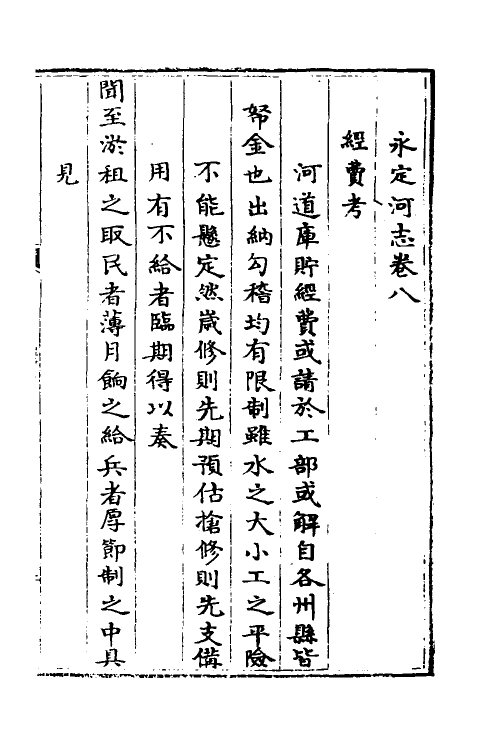 永定河志卷八
經費考
河道庫貯經費或請於工部或解自各州縣皆
帑金也出納勾稽均有限制雖水之大小工之平險
不能懸定然歲修則先期預估搶修則先支備
用有不給者臨期得以奏
聞至淤租之取民者薄月餉之給兵者厚節制之中具
見